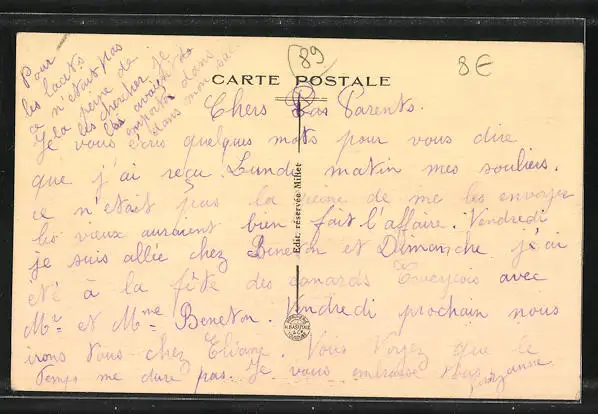 89
8€
CARTE POSTALE
Pour
les lacets
ce n'était pas
la peine de
les chercher je
les avaient
emporté dans
dans mon sac
Chers Parents.
Je vous écris quelques mots pour vous dire
que j'ai reçu Lundi matin mes souliers.
ce n'était pas la peine de me les envoyer
les vieux auraient bien fait l'affaire. Vendredi
je suis allée chez Beneton et Dimanche j'ai
été à la fête des canards avec
Mr et Mme Beneton. Vendredi prochain nous
irons tous chez Eliane. Vous voyez que le
temps me dure pas. Je vous embrasse tous
Suzanne
Edit. réservée Millet